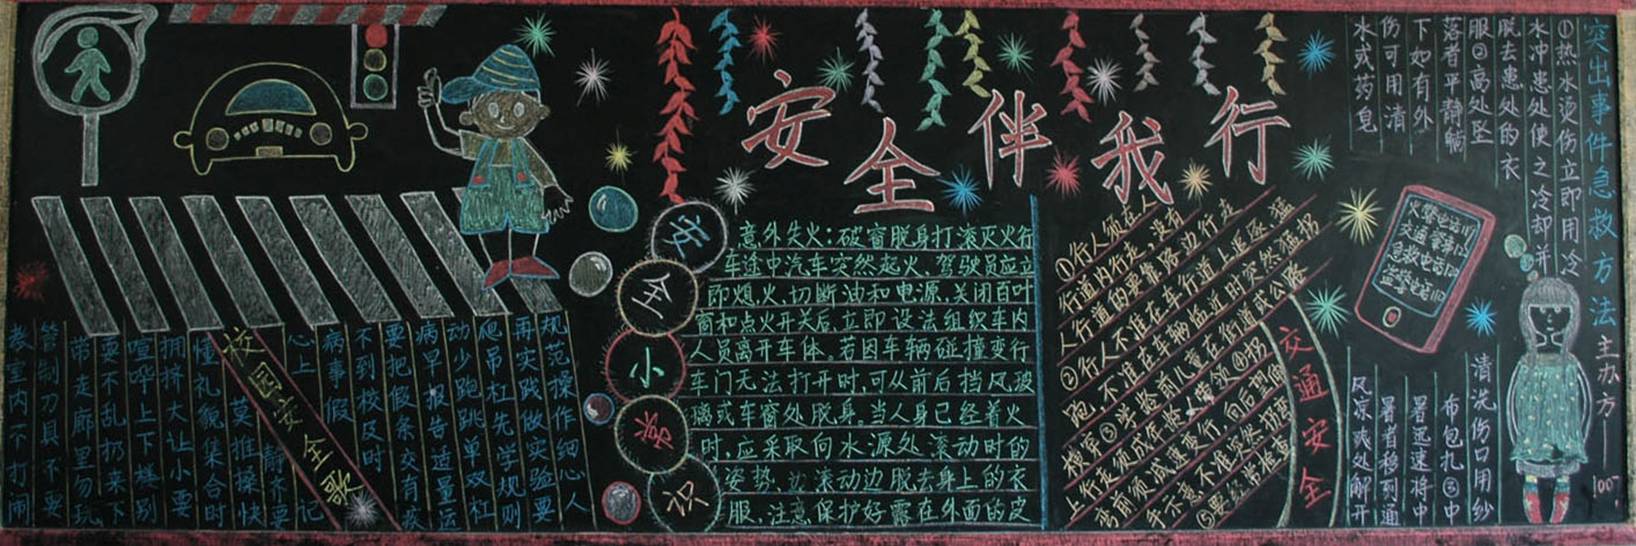 安全伴我行
突出事件急救方法
①热水烫伤立即用冷
水冲患处使之冷却并
脱去患处的衣
服②高处坠
落者平静躺
下如有外
伤可用清
水或药皂
清洗伤口用纱
布包扎③中
暑迅速将中
暑者移到通
风凉爽处解开
主办方
安全小常识
意外失火：破窗脱身打滚灭火行
车途中汽车突然起火，驾驶员应立
即熄火，切断油和电源，关闭百叶
窗和点火开关后，立即设法组织车内
人员离开车体。若因车辆碰撞变行
车门无法打开时，可从前后挡风玻
璃或车窗处脱身。当人身已经着火
时，应采取向水源处滚动时的
姿势，边滚动边脱去身上的衣
服，注意保护好露在外面的皮
交通安全
①行人须在人
行道内行走，没有
人行道的要靠路边行走
②行人不准在车行道上追逐，猛
跑，不准在车辆临近时突然猛拐
横穿③学龄前儿童在街道或公路
上行走须成年人带领④拐
弯前须减速慢行，向后望，伸
手示意，不准突然拐弯
⑤要经常检查
校园安全歌
规范操作细心人
再实践做实验要
爬吊杠先学规则
动少跑跳单双杠
病早报告适量运
要把假条交有疾
不到校及时
病事假
心上
懂礼貌集合时
拥挤大让小要
喧哗上下楼别
要不乱扔来下
带走廊里勿玩
管制刀具不要
教室内不打闹